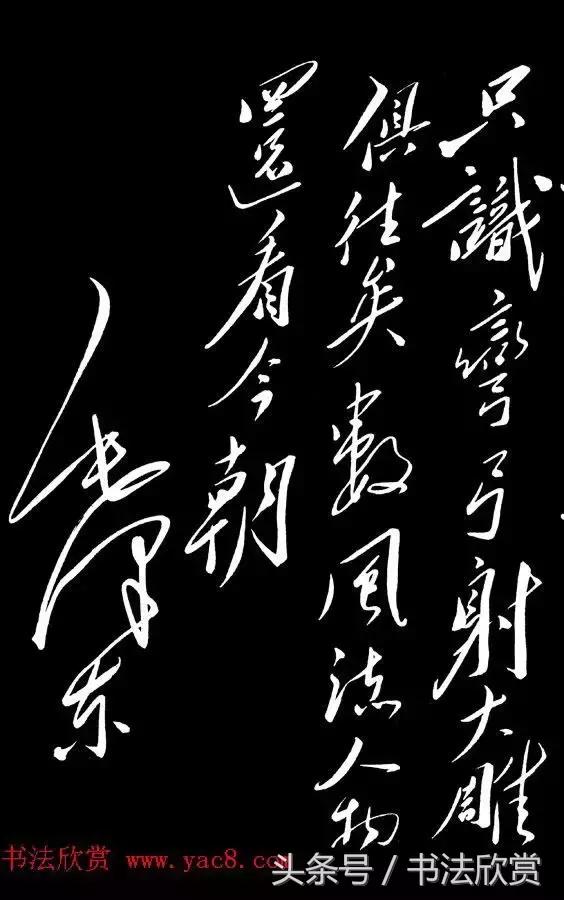 只識彎弓射大雕
俱往矣數風流人物
還看今朝
毛澤东
书法欣赏 www.yac8.com
头条号 / 书法欣赏